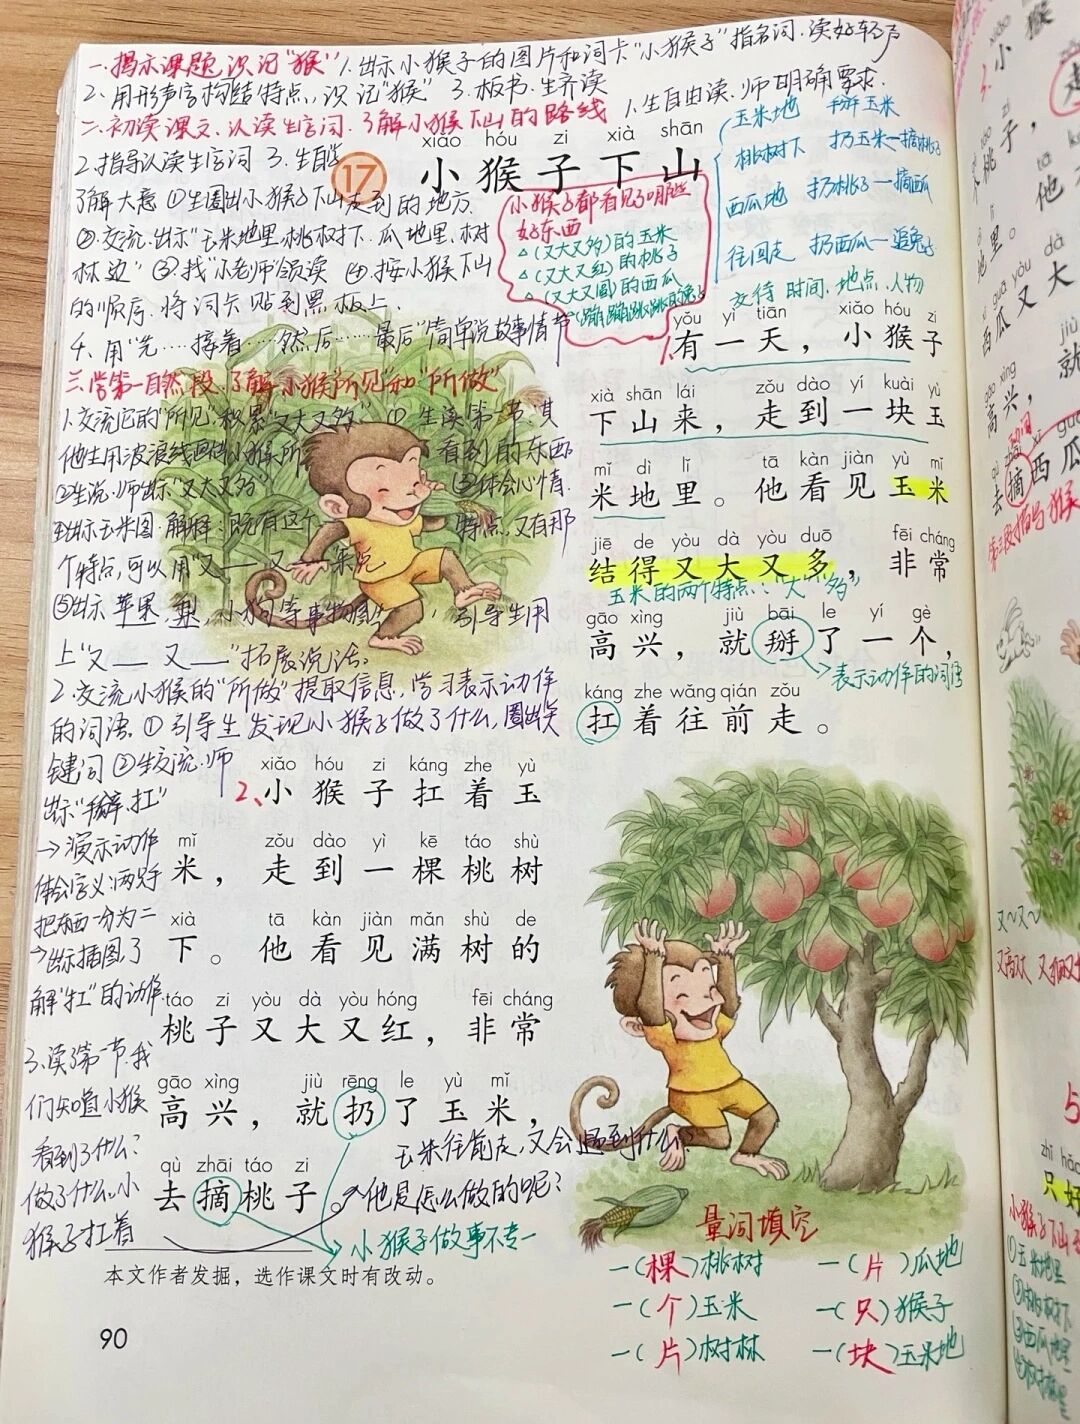 一.揭示课题,识记"猴" 1.出示小猴子的图片和词卡"小猴子"指名词.读好轻声
2.用形声字构字特点,识记"猴" 3.板书.生齐读
二.初读课文.认读生字词.了解小猴下山的路线 1.生自由读.师明确要求.
2.指导认读生字词 3.生自学
了解大意 ①生圈出小猴子下山走到的地方.
②.交流.出示"玉米地里.桃树下.瓜地里.树
林边" ③.找"小老师"领读 ④.按小猴下山
的顺序.将词卡贴到黑板上.
4.用"先……接着……然后……最后"简单说故事情节
17
xiǎo hóu zi xià shān
小猴子下山
玉米地 掰玉米
桃树下 扔玉米—摘桃子
西瓜地 扔桃子—摘西瓜
往回走 扔西瓜—追兔子
小猴子都看见了哪些
好东西
△(又大又多)的玉米
△(又大又红)的桃子
△(又大又圆)的西瓜
(蹦蹦跳跳)的兔子
交待 时间、地点、人物
三.学第一自然段.了解小猴"所见"和"所做"
1.交流它的"所见".积累"又大又多" ① 生读第一节.其
他生用波浪线画出小猴所 看到的东西
②生说.师出示"又大又多" ③体会心情.
④出示玉米图.解释:既有这个 特点,又有那
个特点,可以用"又__又__"来说
⑤出示苹果,梨,小狗等事物图片,引导生用
上"又__ 又__"拓展说话。
2.交流小猴的"所做"提取信息,学习表示动作
的词语. ①引导生发现小猴子做了什么,圈出关
键词 ②生交流.师
出示"掰、扛"
→演示动作
体会字义:两只手
把东西一分为二
→出示插图,了
解"扛"的动作
3.读了第一节.我
们知道小猴
看到了什么?
做了什么.小
猴子扛着
玉米往前走,又会遇到什么?
他是怎么做的呢?
1、
yǒu yì tiān xiǎo hóu zi
有一天，小猴子
xià shān lái zǒu dào yí kuài yù
下山来，走到一块玉
mǐ dì lǐ tā kàn jiàn yù mǐ
米地里。他看见玉米
jiē de yòu dà yòu duō fēi cháng
结得又大又多，非常
玉米的两个特点:"大""多"
gāo xìng jiù bāi le yí gè
高兴，就掰了一个，
→表示动作的词语
káng zhe wǎng qián zǒu
扛着往前走。
xiǎo hóu zi káng zhe yù
2、小猴子扛着玉
mǐ zǒu dào yì kē táo shù
米，走到一棵桃树
xià tā kàn jiàn mǎn shù de
下。他看见满树的
táo zi yòu dà yòu hóng fēi cháng
桃子又大又红，非常
gāo xìng jiù rēng le yù mǐ
高兴，就扔了玉米，
qù zhāi táo zi
去摘桃子。
小猴子做事不专一
本文作者发掘，选作课文时有改动。
90
量词填空
一(棵)桃树 一(片)瓜地
一(个)玉米 一(只)猴子
一(片)树林 一(块)玉米地
小猴
里。
西瓜又大
高兴，
去摘西瓜
又~又~
只好
①玉米地里
②桃树下
③西瓜地里